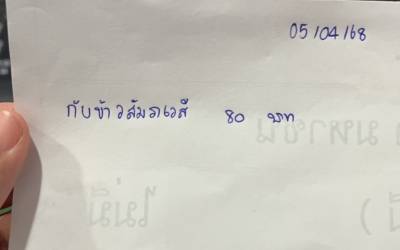 05/04/68
กับข้าวสัมภเวสี 80 บาท